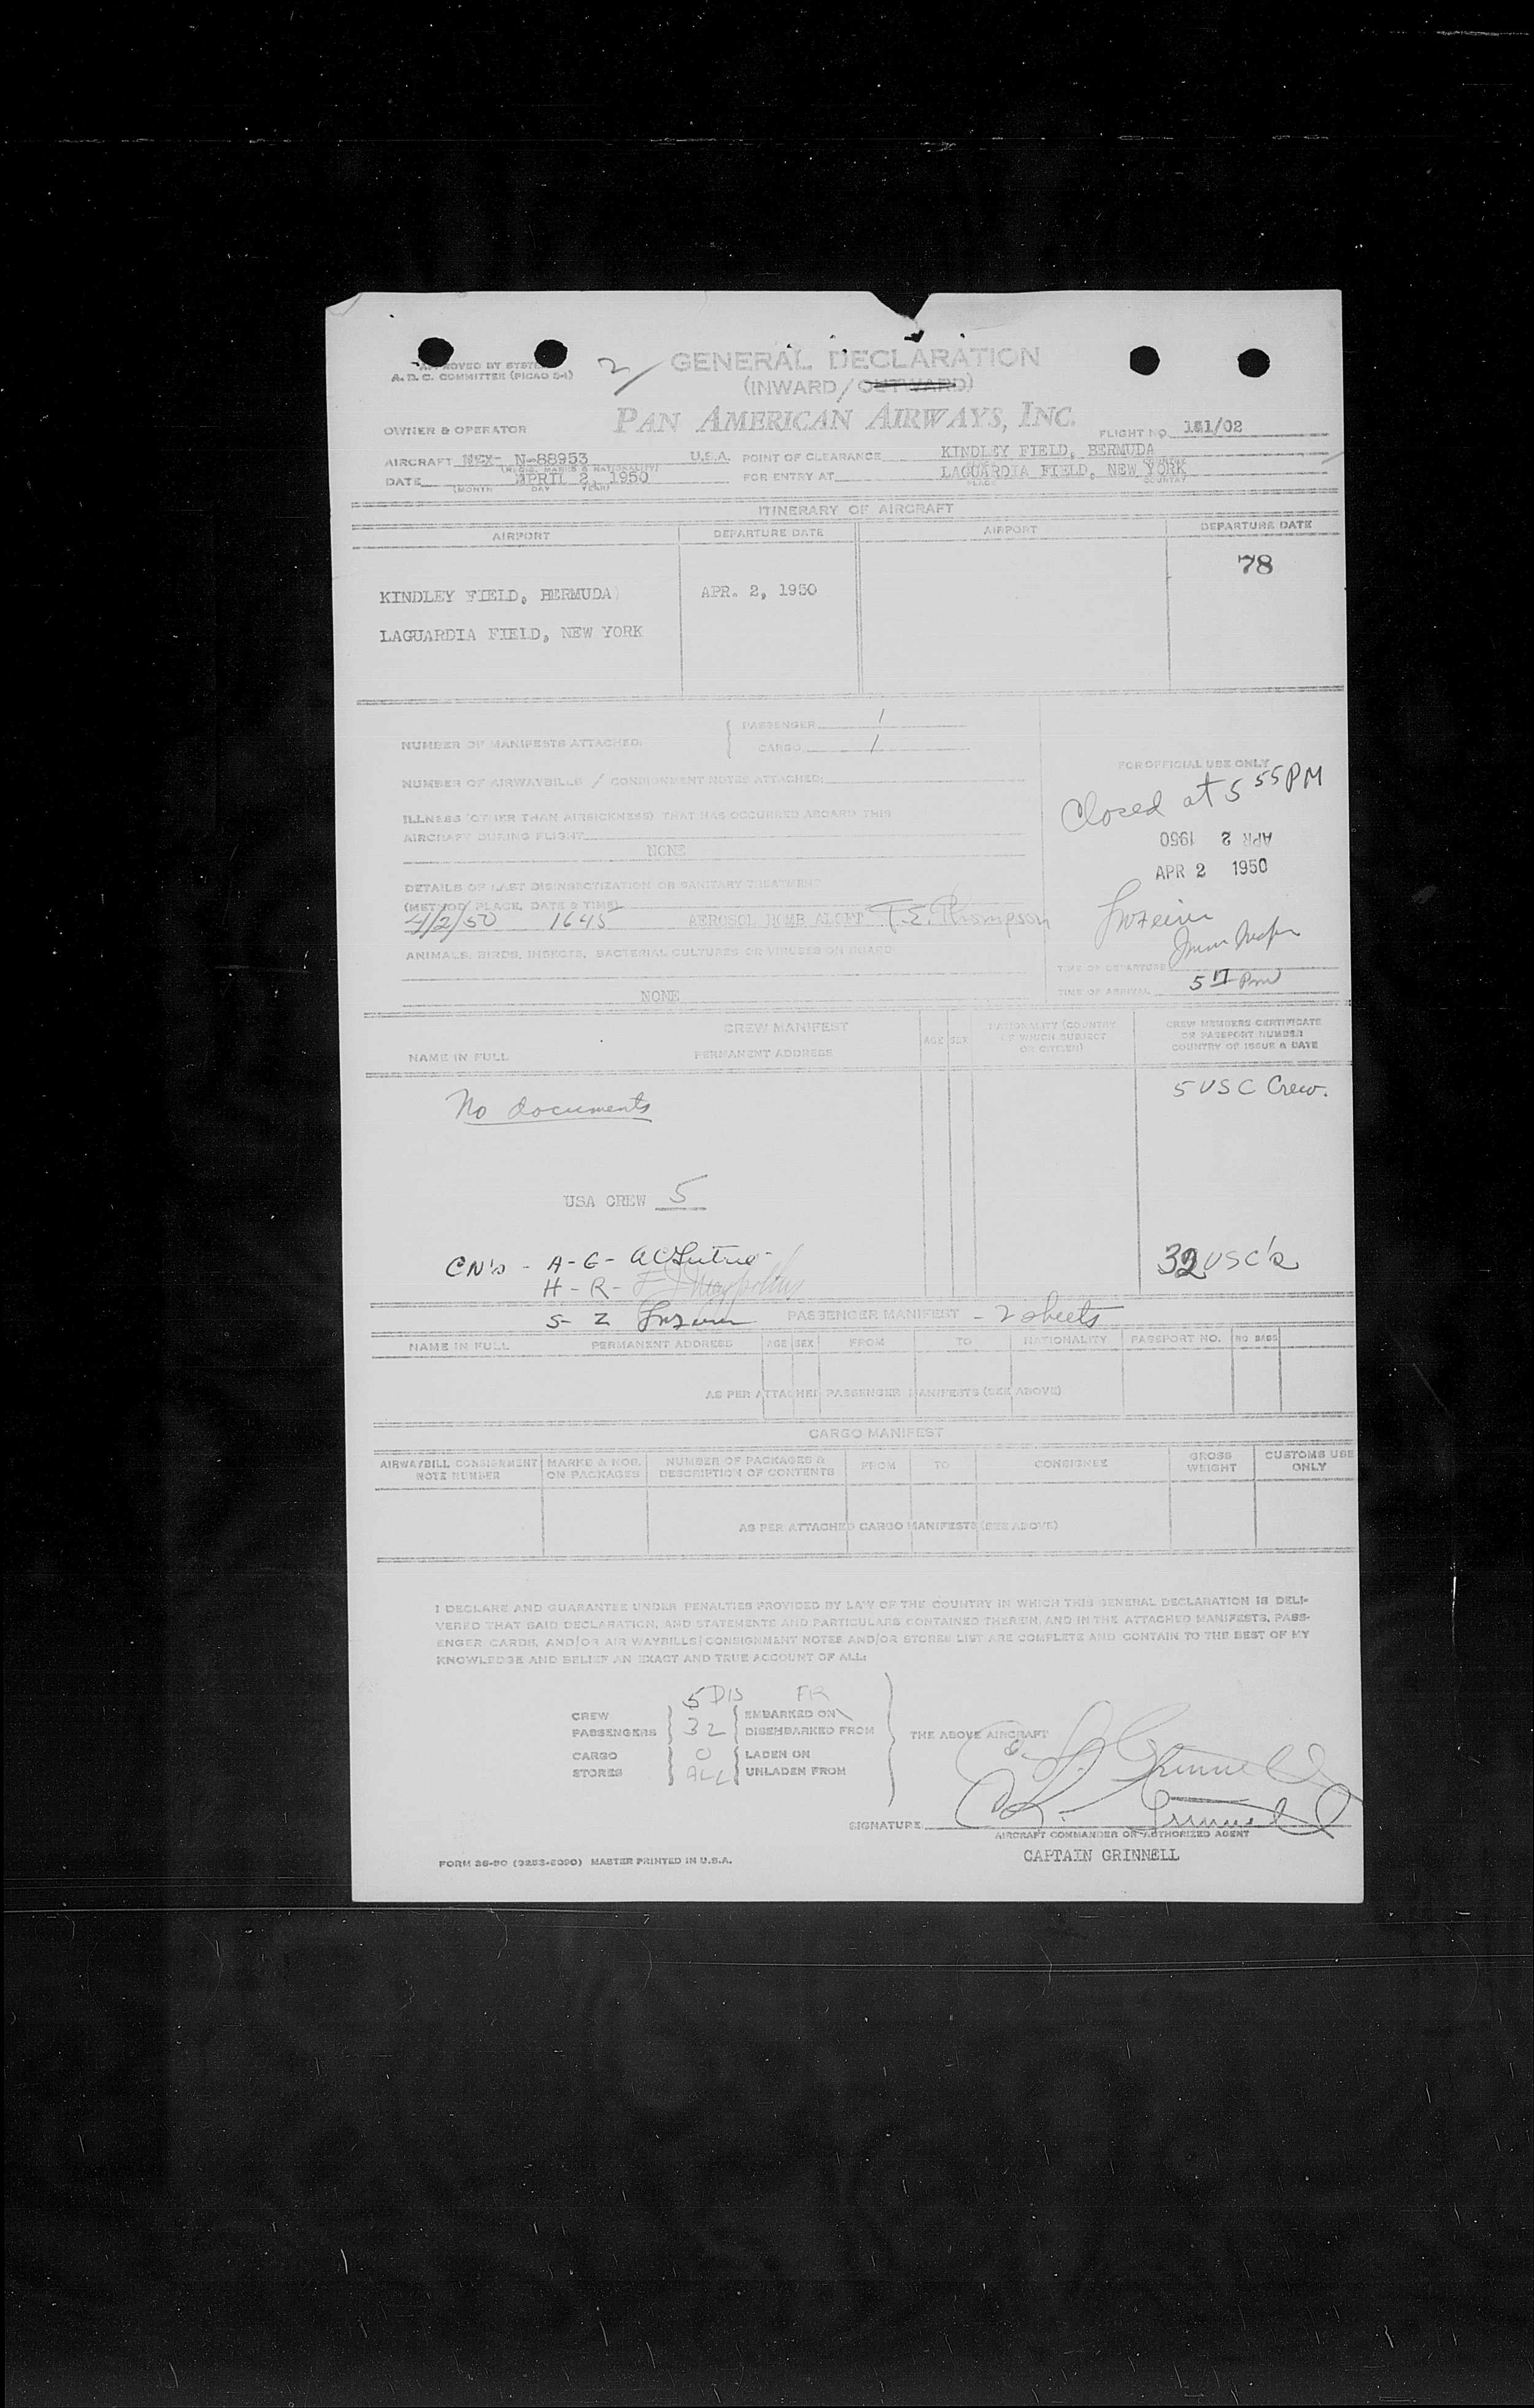 APPROVED BY SYSTEM
A. D. C. COMMITTEE (PICAO 2-1)
2/
GENERAL DECLARATION
(INWARD/OUTWARD)
OWNER & OPERATOR
PAN AMERICAN AIRWAYS, INC.
FLIGHT NO. 131/02
AIRCRAFT N-88953 U.S.A.
(REGIS. MARKS & NATIONALITY)
POINT OF CLEARANCE KINDLEY FIELD, BERMUDA
DATE APRIL 2, 1950
(MONTH DAY YEAR)
FOR ENTRY AT LAGUARDIA FIELD, NEW YORK
PLACE COUNTRY
ITINERARY OF AIRCRAFT
AIRPORT DEPARTURE DATE AIRPORT DEPARTURE DATE
78
KINDLEY FIELD, BERMUDA APR. 2, 1950
LAGUARDIA FIELD, NEW YORK
NUMBER OF MANIFESTS ATTACHED: PASSENGER 1
CARGO 1
NUMBER OF AIRWAYBILLS / CONSIGNMENT NOTES ATTACHED:
ILLNESS (OTHER THAN AIRSICKNESS) THAT HAS OCCURRED ABOARD THIS
AIRCRAFT DURING FLIGHT
NONE
DETAILS OF LAST DISINSECTIZATION OR SANITARY TREATMENT
(METHOD, PLACE, DATE & TIME)
4/2/50 1645 AEROSOL BOMB ALOFT T.E. Thompson
ANIMALS, BIRDS, INSECTS, BACTERIAL CULTURES OR VIRUSES ON BOARD
NONE
FOR OFFICIAL USE ONLY
Closed at 5 55 PM
APR 2 1950
APR 2 1950
TIME OF DEPARTURE
TIME OF ARRIVAL 5 17 PM
CREW MANIFEST
NAME IN FULL PERMANENT ADDRESS AGE SEX NATIONALITY (COUNTRY
OF WHICH SUBJECT
OR CITIZEN)
CREW MEMBERS CERTIFICATE
OR PASSPORT NUMBER
COUNTRY OF ISSUE & DATE
No documents
5 USC Crew.
USA CREW 5
CN's - A-G-
H - R -
S - Z
32 USC's
PASSENGER MANIFEST - 2 sheets
NAME IN FULL PERMANENT ADDRESS AGE SEX FROM TO NATIONALITY PASSPORT NO. NO BAGS
AS PER ATTACHED PASSENGER MANIFESTS (SEE ABOVE)
CARGO MANIFEST
AIRWAYBILL CONSIGNMENT
NOTE NUMBER
MARKS & NOS.
ON PACKAGES
NUMBER OF PACKAGES &
DESCRIPTION OF CONTENTS
FROM TO CONSIGNEE
GROSS
WEIGHT
CUSTOMS USE
ONLY
AS PER ATTACHED CARGO MANIFESTS (SEE ABOVE)
I DECLARE AND GUARANTEE UNDER PENALTIES PROVIDED BY LAW OF THE COUNTRY IN WHICH THIS GENERAL DECLARATION IS DELI-
VERED THAT SAID DECLARATION, AND STATEMENTS AND PARTICULARS CONTAINED THEREIN, AND IN THE ATTACHED MANIFESTS, PASS-
ENGER CARDS, AND/OR AIR WAYBILLS/CONSIGNMENT NOTES AND/OR STORES LIST ARE COMPLETE AND CONTAIN TO THE BEST OF MY
KNOWLEDGE AND BELIEF AN EXACT AND TRUE ACCOUNT OF ALL:
CREW 5 DIS FR EMBARKED ON
PASSENGERS 32 DISEMBARKED FROM
THE ABOVE AIRCRAFT
CARGO 0 LADEN ON
STORES ALL UNLADEN FROM
SIGNATURE
AIRCRAFT COMMANDER OR AUTHORIZED AGENT
CAPTAIN GRINNELL
FORM 36-90 (9253-6090) MASTER PRINTED IN U.S.A.